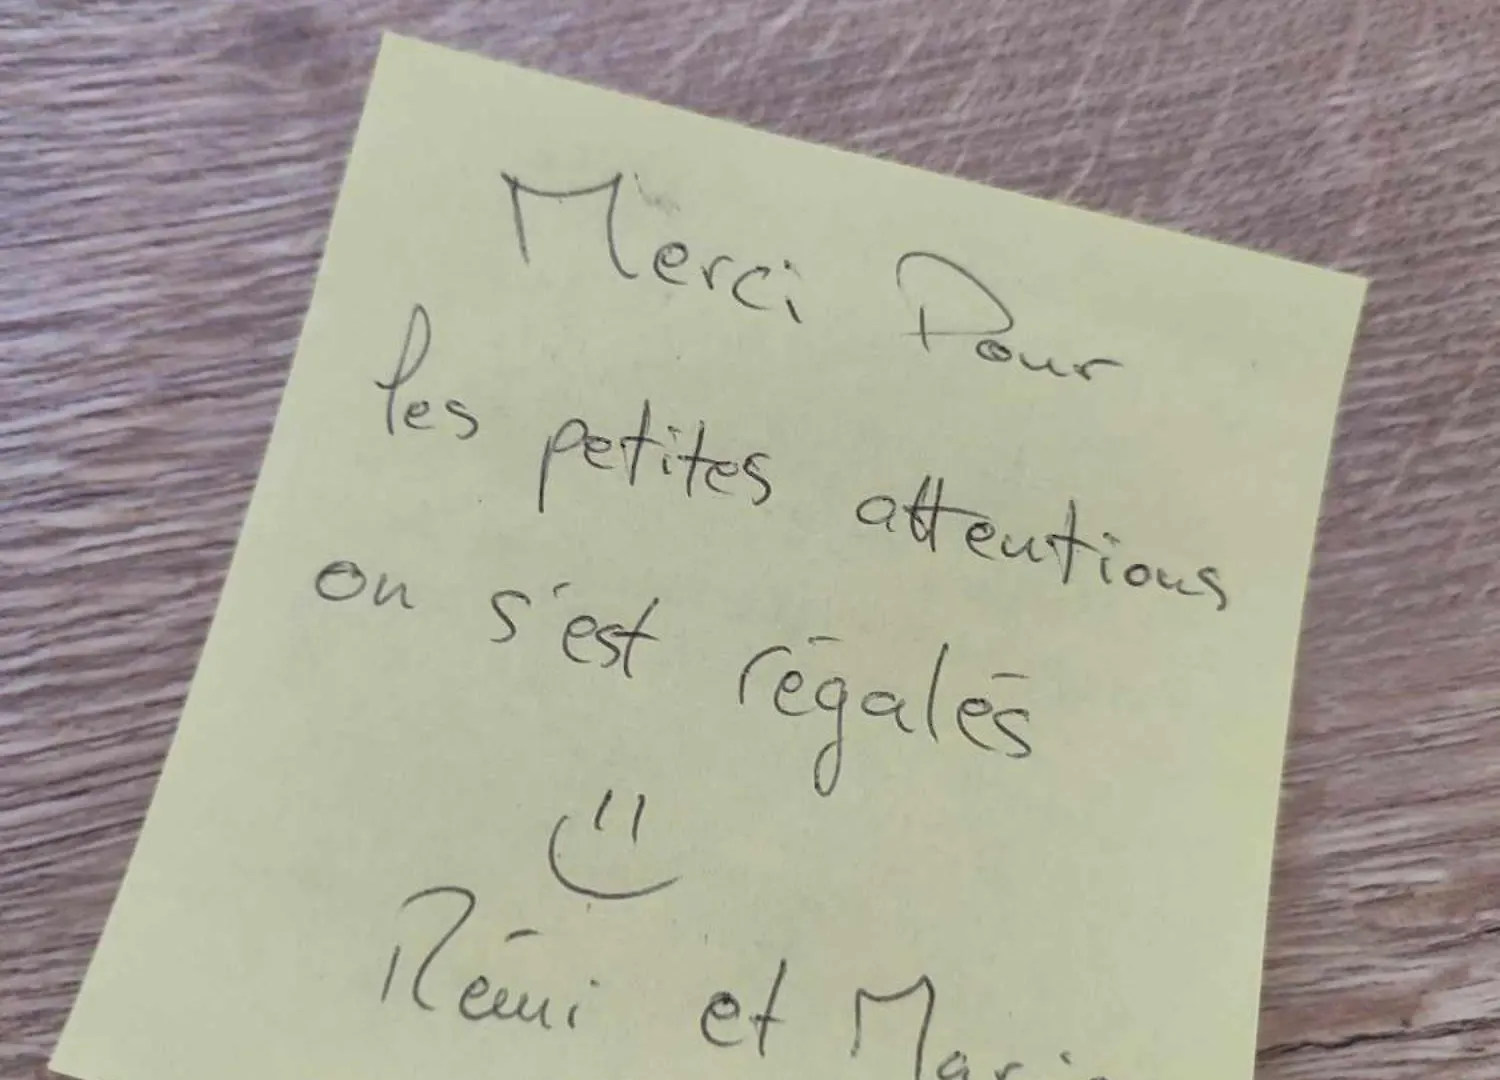 Merci Pour
les petites attentions
on s'est régalés
Rémi et